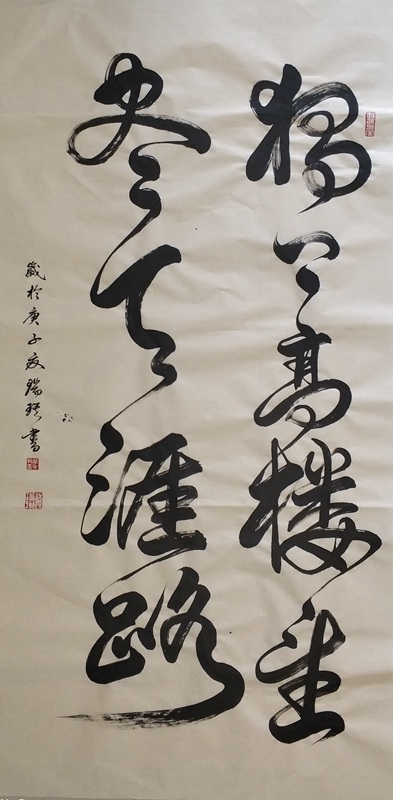 独上高楼望
尽天涯路
歲於庚子夏瑞琪書